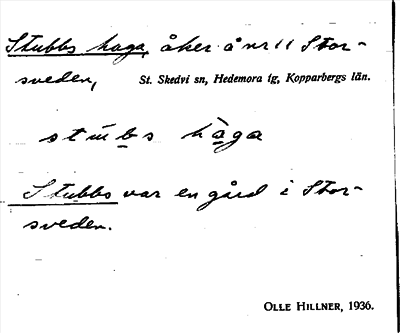 Stubbs haga, åker å nr 11 Stor-
sveden, St. Skedvi sn, Hedemora tg, Kopparbergs län.
stúbs hàga
Stubbs var en gård i Stor-
sveden.
OLLE HILLNER, 1936.